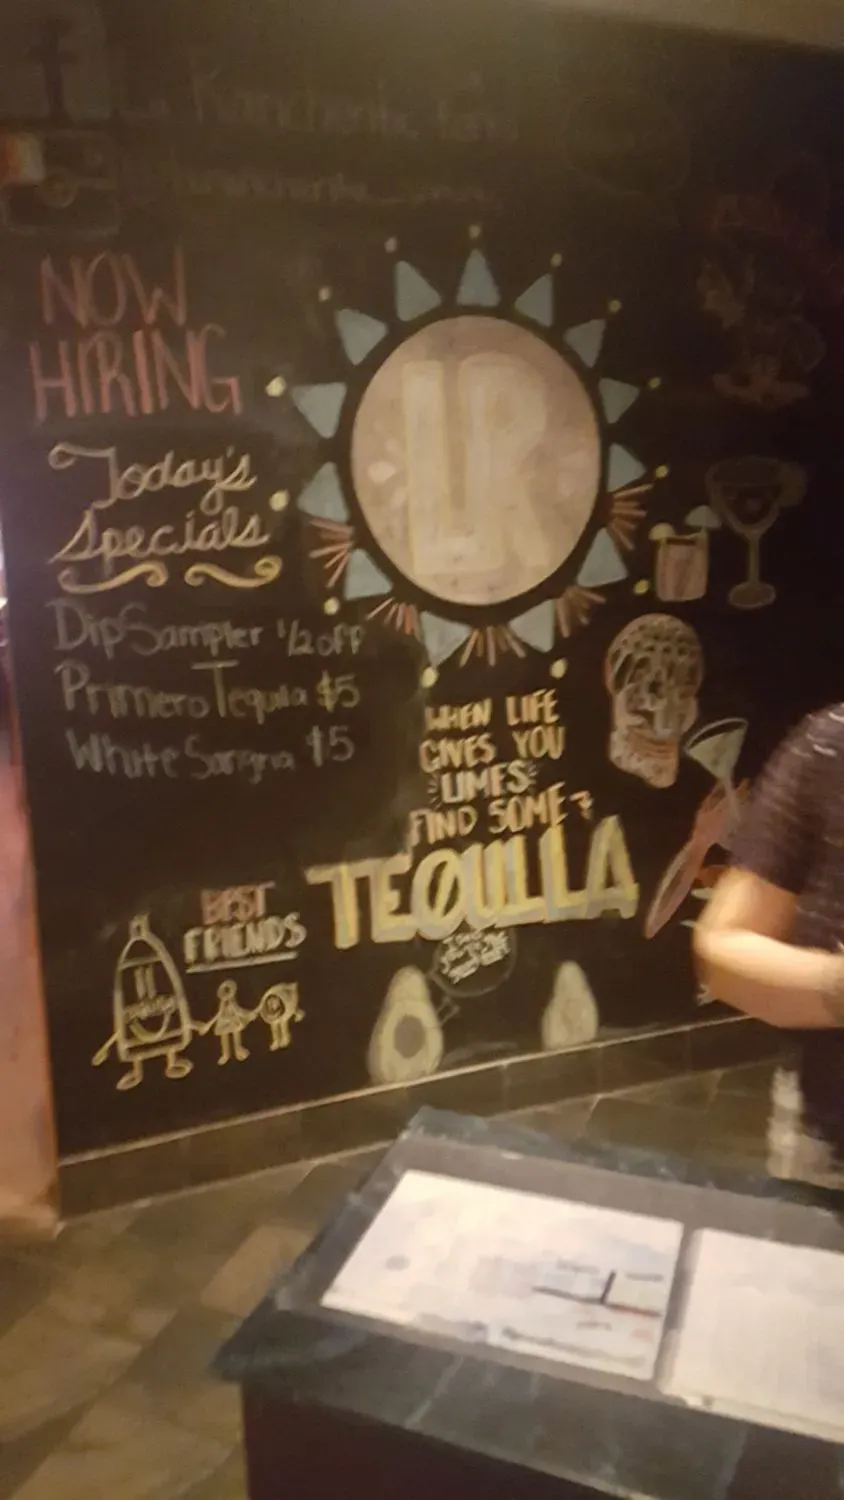 NOW
HIRING
Today's
Specials
Dip Sampler 1/2 off
Primero Tequila $5
White Sangria $5
LR
WHEN LIFE
GIVES YOU
LIMES
FIND SOME
TEQUILLA
BEST
FRIENDS